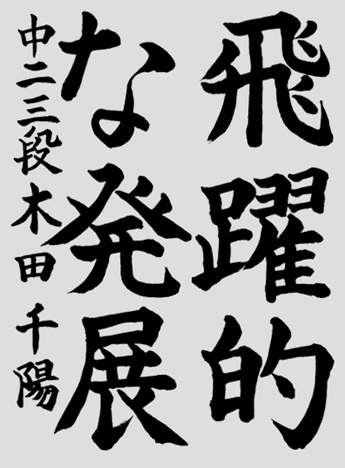 飛躍的
な発展
中二三段木田千陽